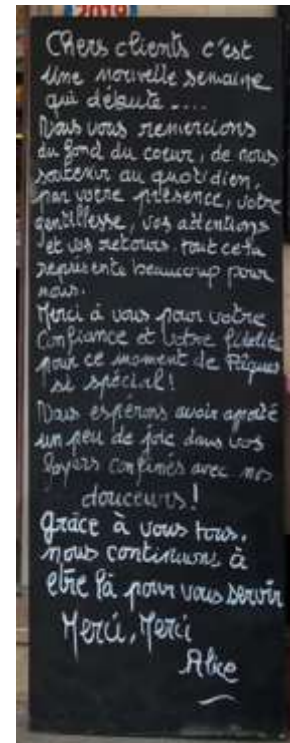 2019
Chers clients c'est
Une nouvelle semaine
qui débute ....
Nous vous remercions
du fond du coeur, de nous
soutenir au quotidien,
par votre présence, votre
gentillesse, vos attentions
et vos retours. tout cela
représente beaucoup pour
nous.
Merci à vous pour votre
Confiance et votre fidélité
pour ce moment de Pâques
si spécial!
Nous espérons avoir apporté
un peu de joie dans vos
foyers confinés avec nos
douceurs!
Grâce à vous tous.
nous continuons à
etre là pour vous servir
Merci, Merci
Alice